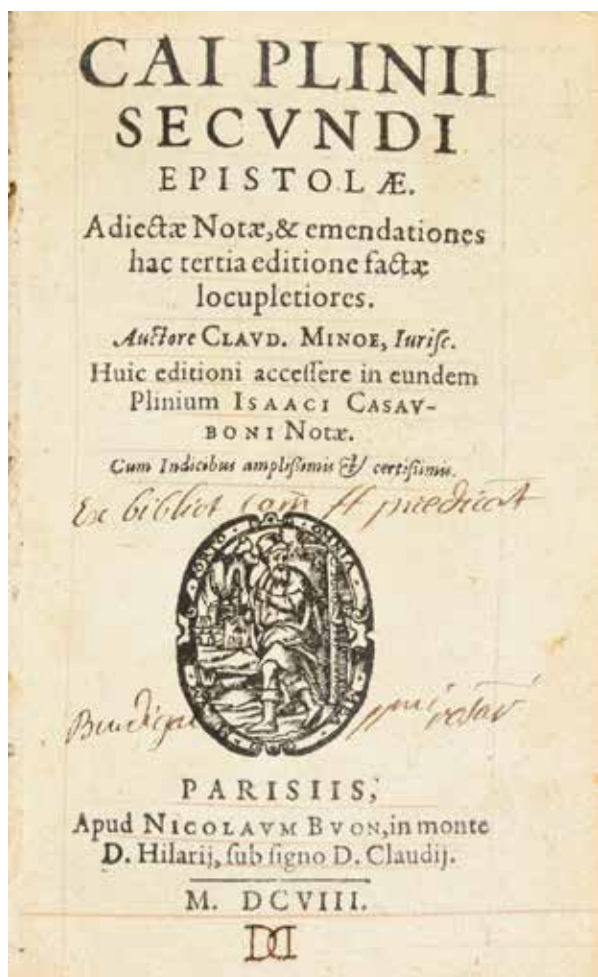 CAI PLINII
SECVNDI
EPISTOLÆ.
Adiectæ Notæ, & emendationes
hac tertia editione factæ
locupletiores.
Auctore CLAVD. MINOE, Iurisc.
Huic editioni accessere in eundem
Plinium ISAACI CASAV-
BONI Notæ.
Cum Indicibus amplissimis & certissimis.
Ex bibliot ff predicat
OMNIA
PORTO
PARISIIS,
Apud NICOLAVM BVON, in monte
D. Hilarij, sub signo D. Claudij.
M. DCVIII.